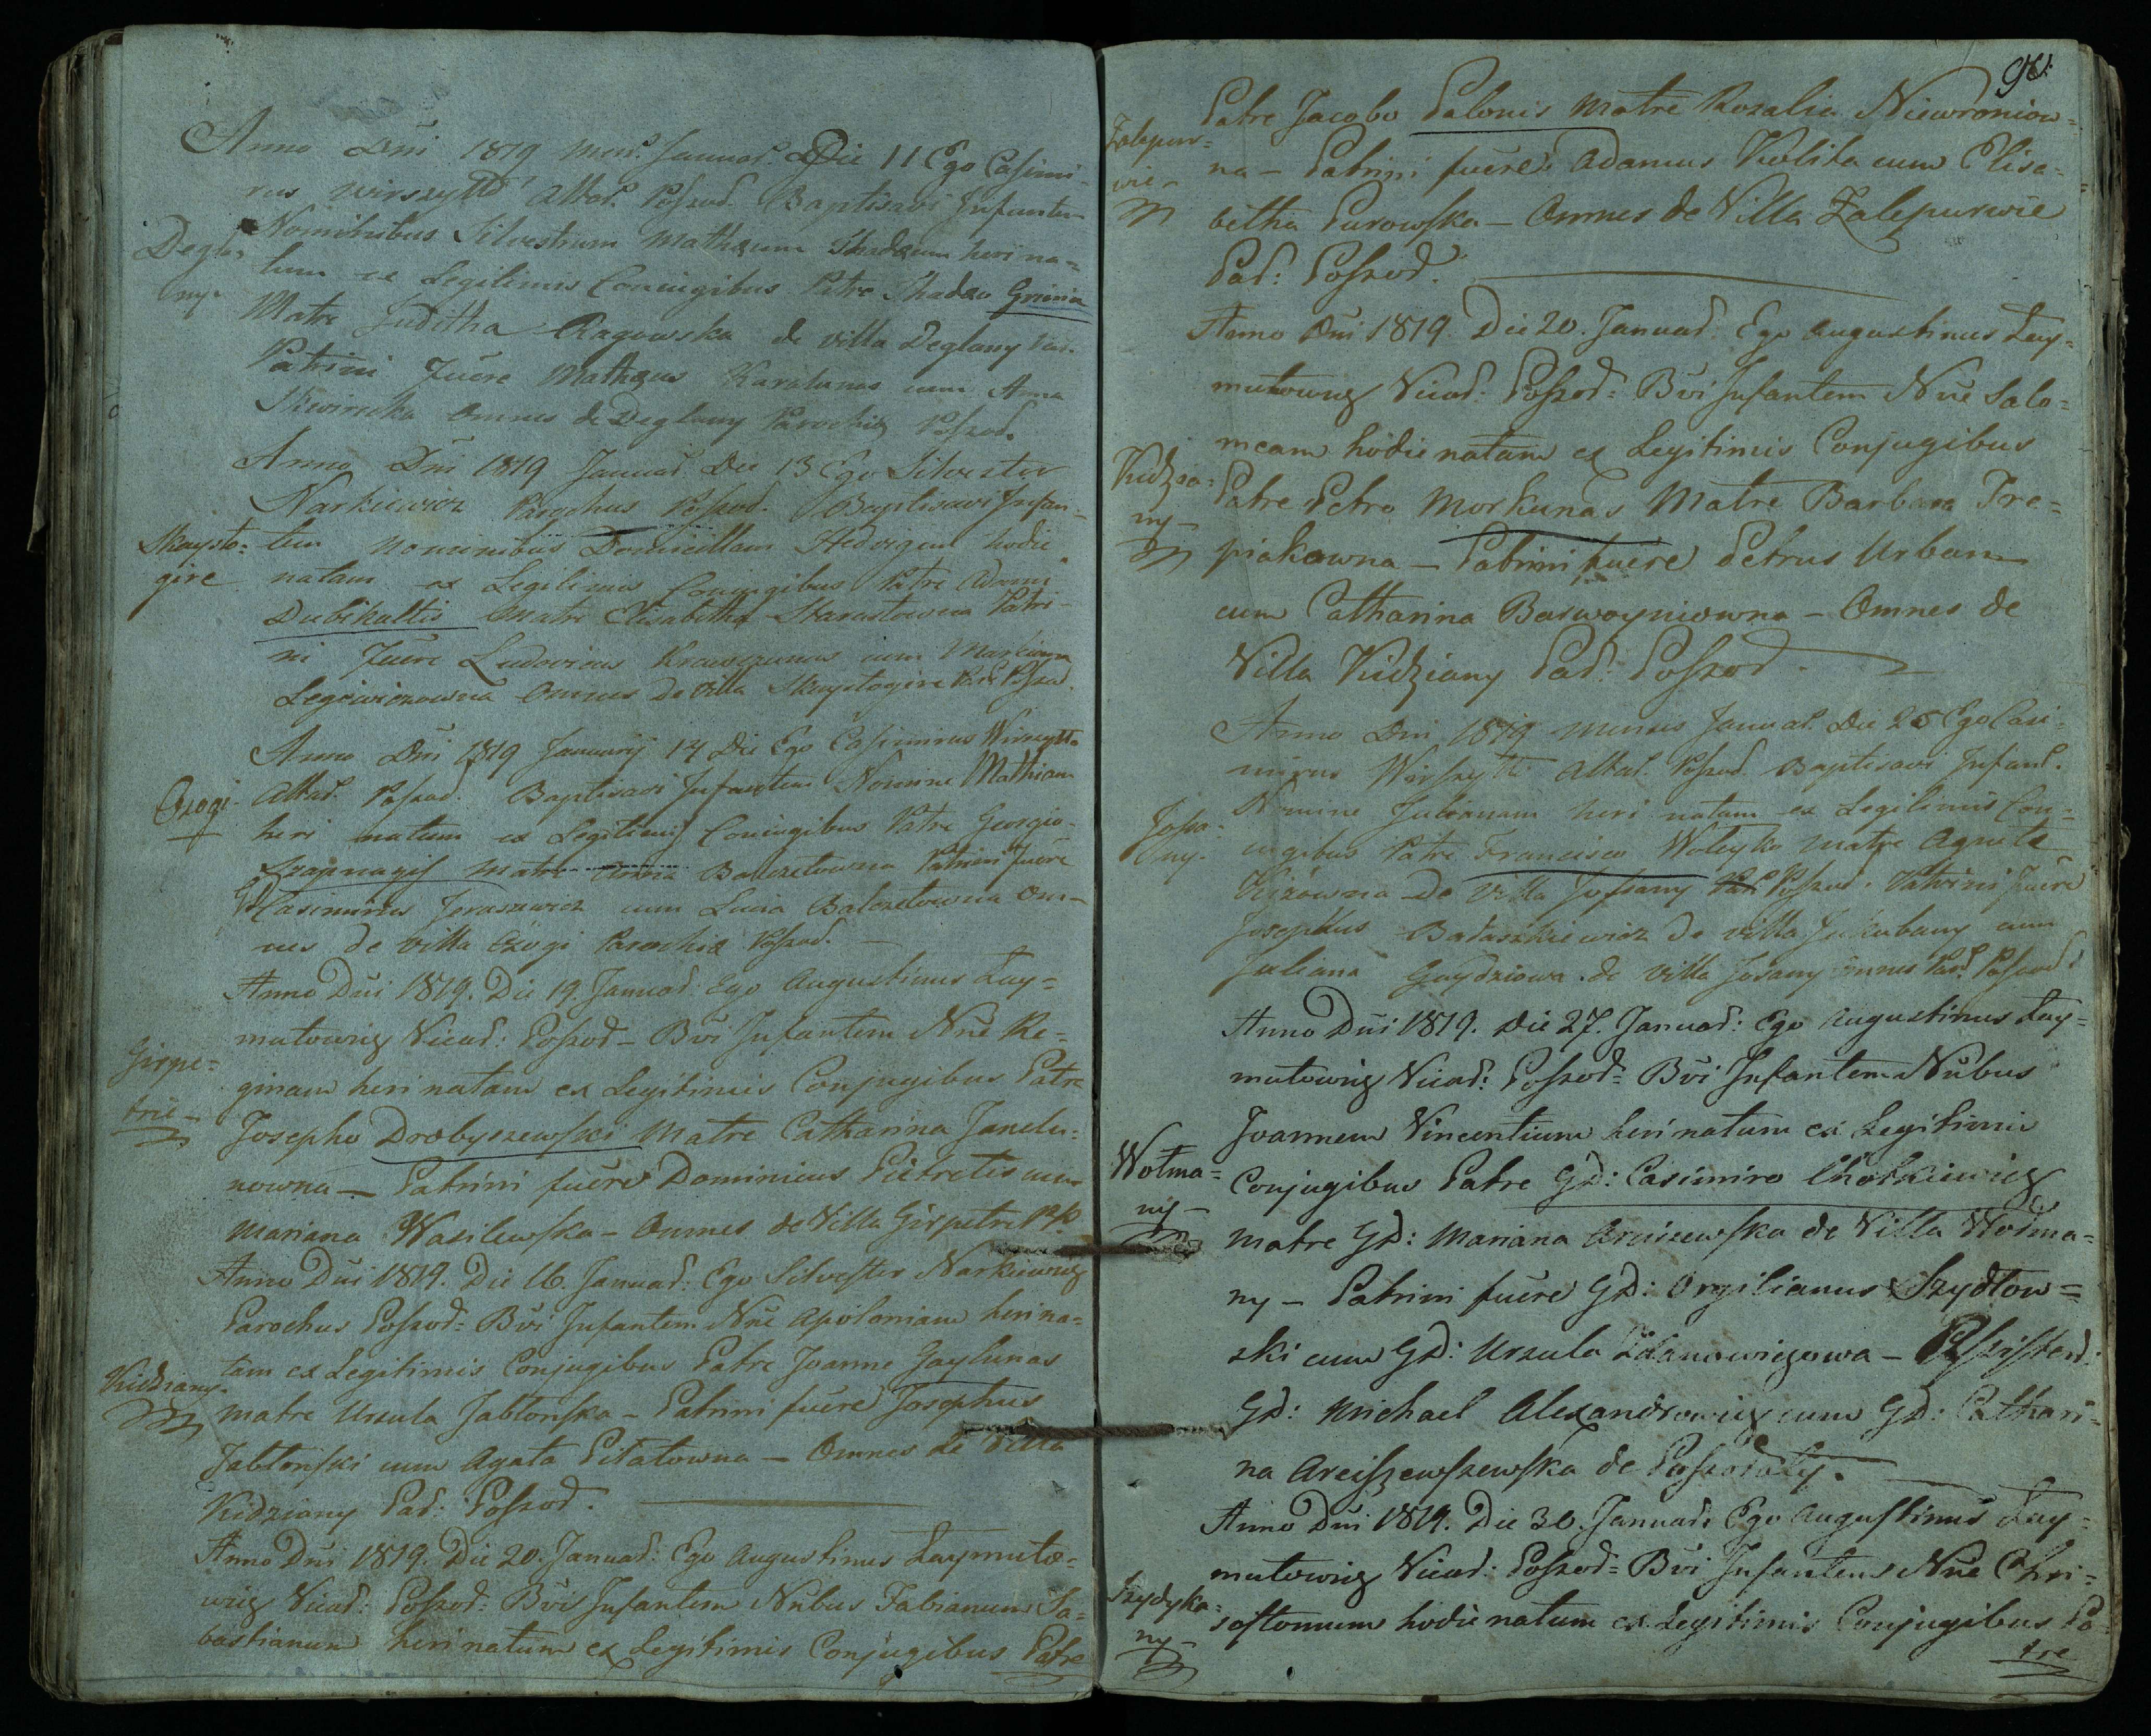 Anno Dni 1819 Mens. Januar. Die 11 Ego Casimi-
rus Wirszytto Altar. Poszod. Baptisavi Infantem
Nominibus Silvestrum Mathæum Thadæum heri na=
Degla=
ny
tum ex Legitimis Coniugibus Patre Thadæo
Matre Juditha Ragowska de villa Deglany Par.
Patrini fuere Mathæus Karalunas cum Anna
omnes de Deglany Parochiæ Poszod.
Anno Dni 1819 Januar. Die 13 Ego Silvester
Narkiewicz Parochus Poszod. Baptisavi Infan-
Skaysto=
gire
tem nominibus Domicellam Hedvigem hodie
natam ex Legitimis Coniugibus Patre Adamo
Dubikaltis Matre Elisabetha Patri-
ni fuere Ludovicus cum Mariana
Legowiczowna omnes de Villa Skaystogire Par. Poszod.
Anno Dni 1819 Januarij 14 Die Ego Casimirus Wirszytto
Ozogi
Altar. Poszod. Baptisavi Infantem Nomine Mathiam
heri natum ex Legitimis Coniugibus Patre Georgio
Szapnagis Matre Anna Balczetowna Patrini fuere
GD Casimirus Jeraszewicz cum Lucia Balczetowna om-
nes de villa Ozogi Parochiæ Poszod.
Anno Dni 1819. Die 19. Januar: Ego Augustinus Lay=
mutowicz Vicar: Poszod= Bvi Infantem Nne Re=
Girpe=
trie
ginam heri natam ex Legitimis Conjugibus Patre
Josepho Drobyszewski Matre Catharina Janelu=
nowna — Patrini fuere Dominicus Pietretis cum
Mariana Wasilewska — Omnes de Villa Girpetri P.P.
Anno Dni 1819. Die 16. Januar: Ego Silvester Narkiewicz
Parochus Poszod= Bvi Infantem Nne Apoloniam heri na=
tam ex Legitimis Conjugibus Patre Joanne Gaylunas
Kidziany
Matre Ursula Jabłońska — Patrini fuere Josephus
Jabłoński cum Agata Piłatowna — Omnes de Villa
Kidziany Par: Poszod.
Anno Dni 1819. Die 20. Januar: Ego Augustinus Laymuto=
wicz Vicar: Poszod= Bvi Infantem Nnibus Fabianum Se=
bastianum heri natum ex Legitimis Conjugibus Patre
90.
Patre Jacobo Palonis Matre Rozalia Niewroniow=
Zalepur=
wie
na — Patrini fuere Adamus Kulita cum Elisa=
betha Purowska — Omnes de Villa Zalepurwie
Par: Poszod.
Anno Dni 1819. Die 20. Januar. Ego Augustinus Lay=
mutowicz Vicar: Poszod= Bvi Infantem Nne Salo=
meam hodie natam ex Legitimis Conjugibus
Kidzia=
ny
Patre Petro Morkunas Matre Barbara Tre=
piakowna — Patrini fuere Petrus Urban
cum Catharina Boswoyniowna — Omnes de
Villa Kidziany Par: Poszod.
Anno Dni 1819 mensis Januar. Die 26 Ego Casi-
mirus Wirszytto Altar. Poszod. Baptisavi Infant.
Nomine Julianam heri natam ex Legitimis Con=
Josza=
ny
iugibus Patre Francisco Woleyko matre Agneta
Kizowna de villa Joszany Par. Poszod. Patrini fuere
Josephus Bałaszkiewicz de villa Jukubany cum
Juliana Gaydziowa de villa Josany omnes Par. Poszod.
Anno Dni 1819. Die 27. Januar: Ego Augustinus Lay=
mutowicz Vicar: Poszod= Bvi Infantem Nnibus
Joannem Vincentium heri natum ex Legitimis
Wołma=
ny
Conjugibus Patre GD: Casimiro Chotkiewicz
Matre GD: Mariana de Villa Wołma=
ny — Patrini fuere GD: Szydłow=
ski cum GD: Ursula Zdanowiczowa —
GD: Michael Alexandrowicz cum GD: Cathari=
na Areiszewszewska de
Anno Dni 1819. Die 30. Januar: Ego Augustinus Lay=
mutowicz Vicar: Poszod= Bvi Infantem Nne Chri=
Szydyka=
ny
sostomum hodie natum ex Legitimis Conjugibus Pa=
tre